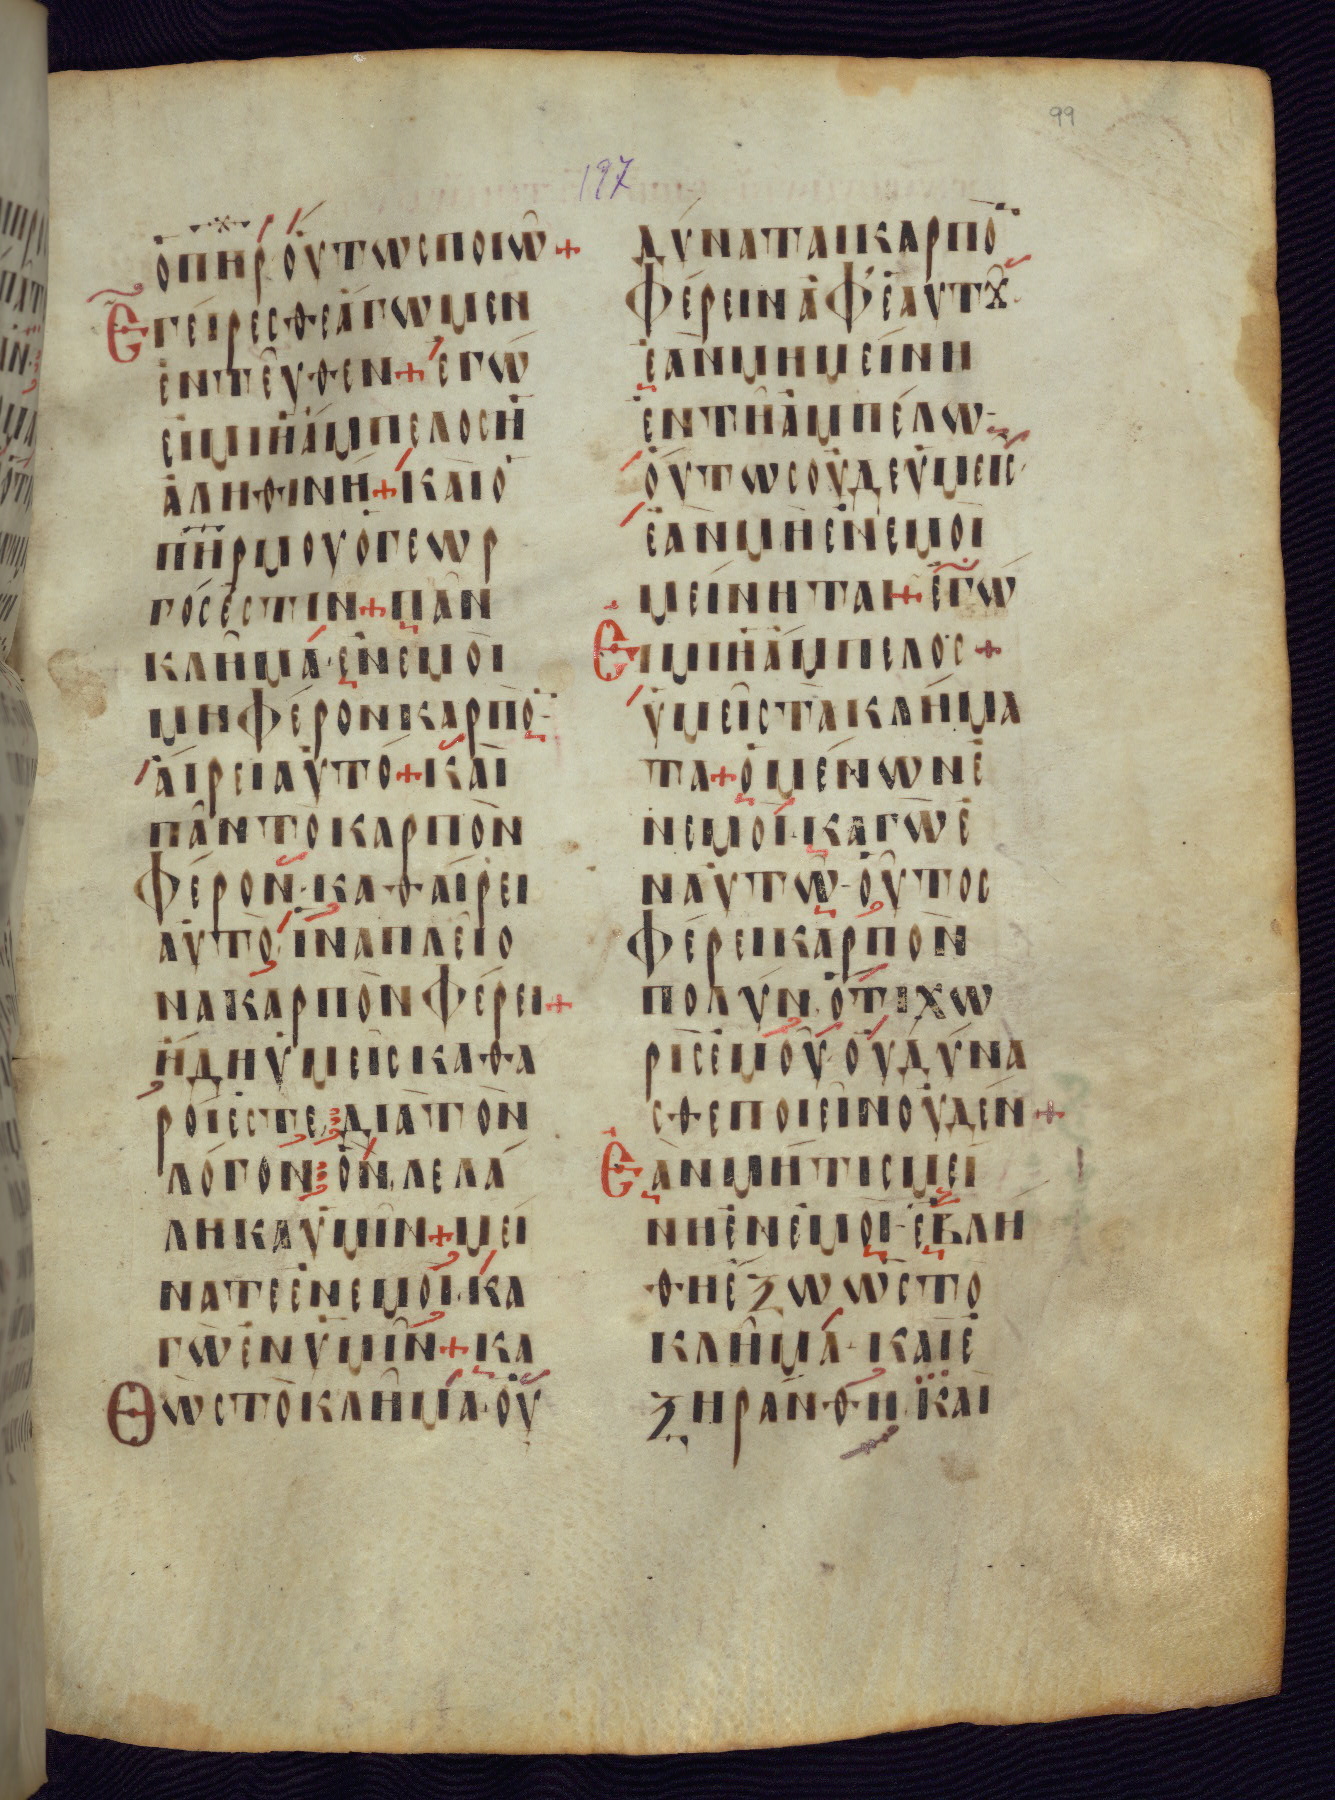 99
197
ὁ πηρ οὕτως ποιῶ +
Ἐγείρεσθε ἄγωμεν
ἐντεῦθεν + ἐγώ
εἰμι ἡ ἄμπελος ἡ
ἀληθινή + καὶ ὁ
πηρ μου ὁ γεωρ
γός ἐστιν + πᾶν
κλῆμα ἐν ἐμοὶ
μὴ φέρον καρπὸ
αἴρει αὐτό + καὶ
πᾶν τὸ καρπὸν
φέρον· καθαίρει
αὐτὸ· ἵνα πλεῖο
να καρπὸν φέρει +
ἤδη ὑμεῖς καθα
ροί ἐστε διὰ τὸν
λόγον ὃν λελά
ληκα ὑμῖν + μεί
νατε ἐν ἐμοί· κα
γὼ ἐν ὑμῖν + κα
θὼς τὸ κλῆμα· οὐ
δύναται καρπὸ
φέρειν ἀφ' ἑαυτȣ
ἐὰν μὴ μείνη
ἐν τῆ ἀμπέλω·
οὕτως οὐδὲ ὑμεῖς·
ἐὰν μὴ ἐν ἐμοὶ
μείνηται + ἐγώ
εἰμι ἡ ἄμπελος +
ὑμεῖς τὰ κλήμα
τα + ὁ μένων ἐ
ν ἐμοί· καγὼ ἐ
ν αὐτῶ· οὗτος
φέρει καρπὸν
πολύν· ὅτι χω
ρὶς ἐμοῦ· οὐ δύνα
σθε ποιεῖν οὐδέν +
Ἐὰν μή τις μεί
νη ἐν ἐμοί· ἐβλή
θη ἔξω ὡς τὸ
κλῆμα· καὶ ἐ
ξηράνθη· καὶ